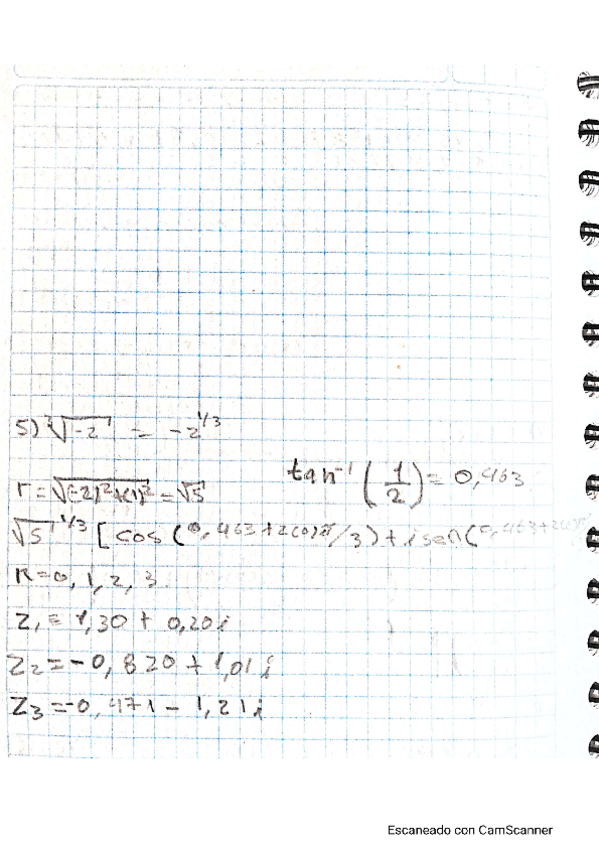 5) ∛-2 = -2^1/3
r = √(-2)²+(1)² = √5
tan⁻¹ (1/2) = 0,463
√5^1/3 [cos (0,463+2(0)π/3) + i sen (0,463+2(0)π
K=0, 1, 2, 3
Z₁ = 1,30 + 0,20i
Z₂ = -0,820 + 1,01i
Z₃ = -0,471 - 1,21i
Escaneado con CamScanner